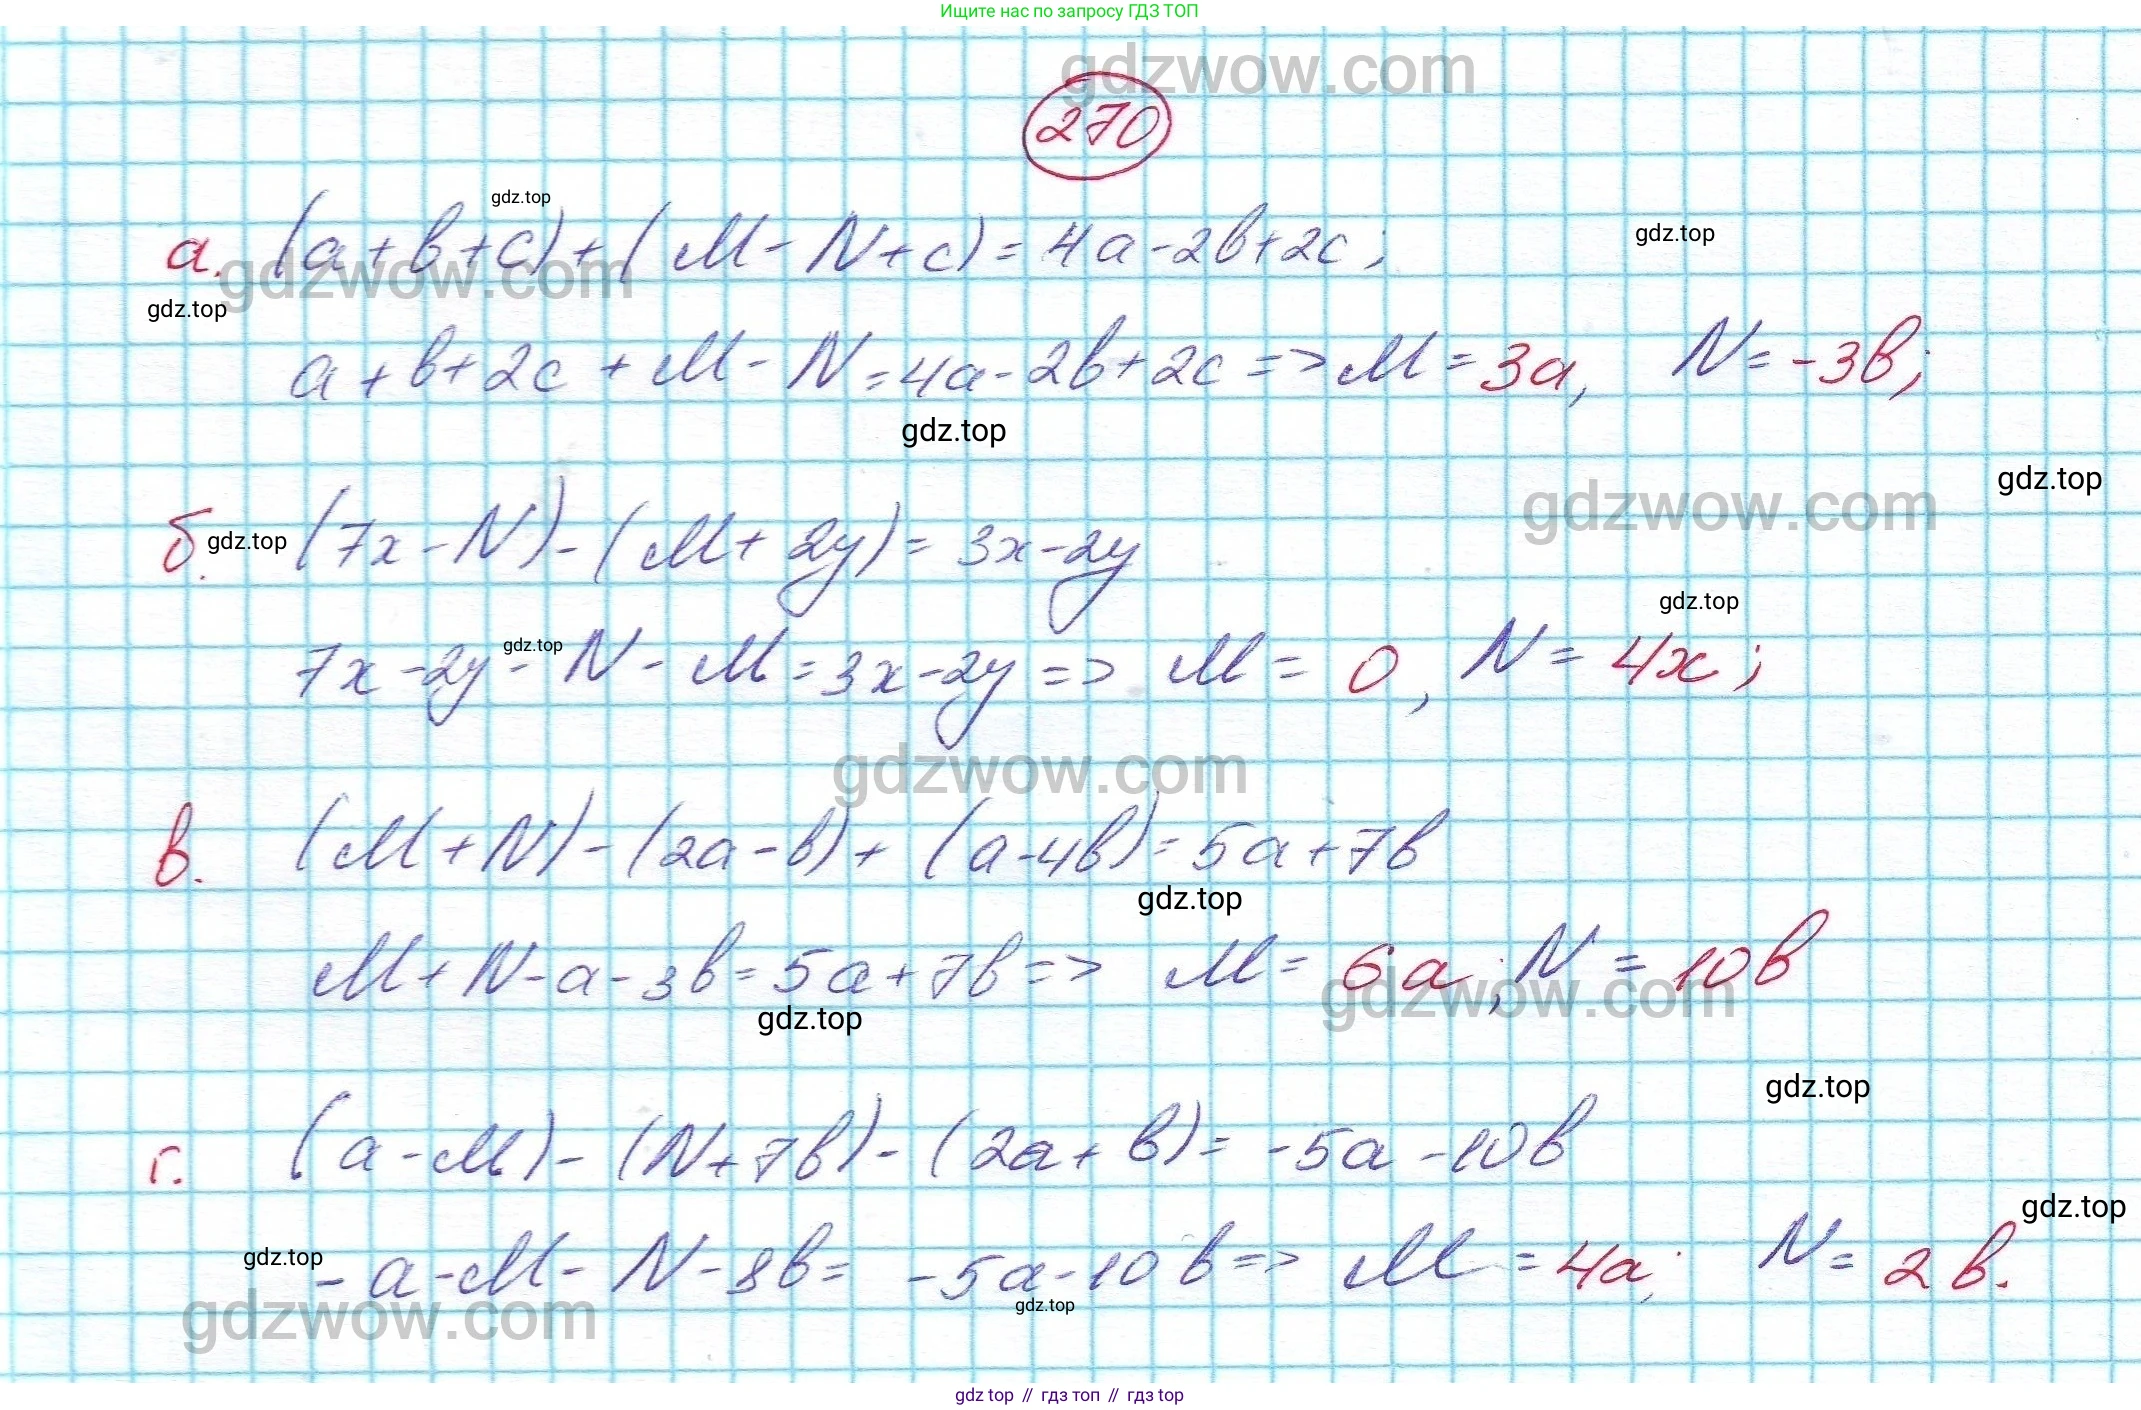 Ищите нас по запросу ГДЗ ТОП
gdzwow.com
270
gdz.top
а. (a+b+c)+(M-N+c)=4a-2b+2c;
gdz.top
gdzwow.com
gdz.top
a+b+2c+M-N=4a-2b+2c=>M=3a, N=-3b;
gdz.top
gdz.top
gdzwow.com
б. (7x-N)-(M+2y)=3x-2y
gdz.top
gdz.top
gdz.top
7x-2y-N-M=3x-2y=> M=0, N=4x;
gdzwow.com
в. (M+N)-(2a-b)+(a-4b)=5a+7b
gdz.top
M+N-a-3b=5a+7b=> M=6a; N=10b
gdzwow.com
gdz.top
gdz.top
г. (a-M)-(N+7b)-(2a+b)=-5a-10b
gdz.top
gdz.top
-a-M-N-8b=-5a-10b=> M=4a; N=2b.
gdz.top
gdzwow.com
gdz top // гдз топ // гдз top